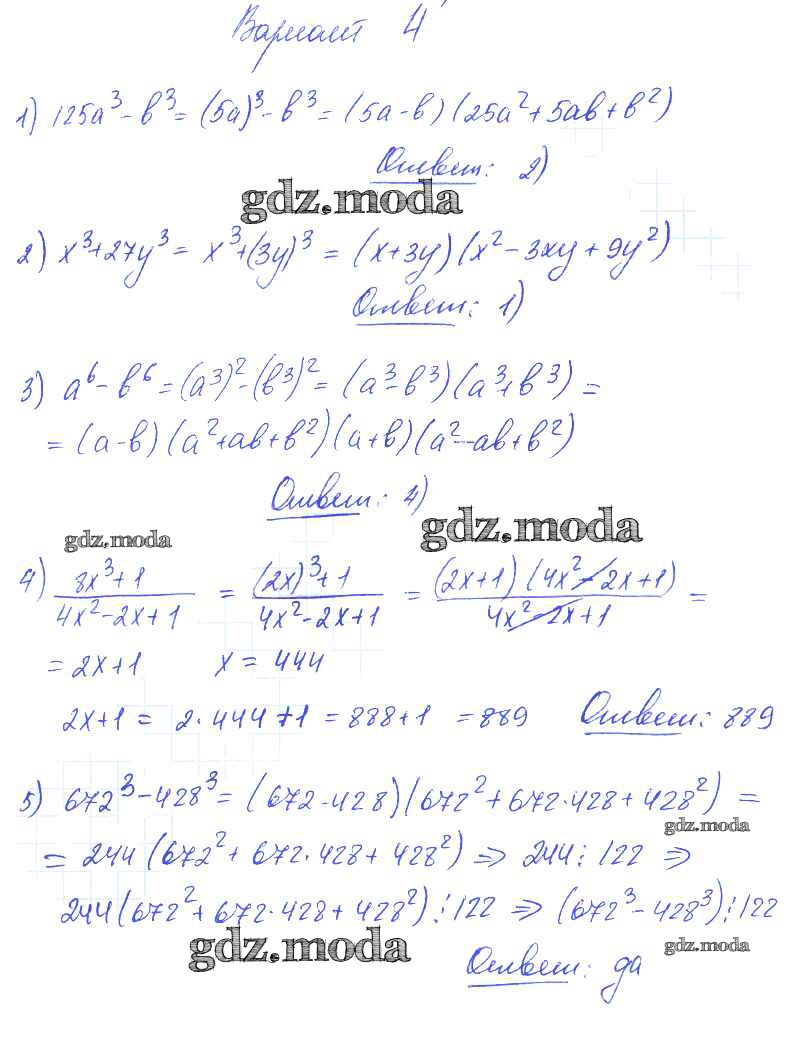 Вариант 4
1) 125a³ - b³ = (5a)³ - b³ = (5a - b)(25a² + 5ab + b²)
Ответ: 2)
gdz.moda
2) x³ + 27y³ = x³ + (3y)³ = (x + 3y)(x² - 3xy + 9y²)
Ответ: 1)
3) a⁶ - b⁶ = (a³)² - (b³)² = (a³ - b³)(a³ + b³) =
= (a - b)(a² + ab + b²)(a + b)(a² - ab + b²)
Ответ: 4)
gdz.moda gdz.moda
4) (8x³ + 1)/(4x² - 2x + 1) = ((2x)³ + 1)/(4x² - 2x + 1) = ((2x + 1)(4x² - 2x + 1))/(4x² - 2x + 1) =
= 2x + 1 x = 444
2x + 1 = 2·444 + 1 = 888 + 1 = 889 Ответ: 889
5) 672³ - 428³ = (672 - 428)(672² + 672·428 + 428²) =
gdz.moda
= 244(672² + 672·428 + 428²) ⇒ 244 ⋮ 122 ⇒
244(672² + 672·428 + 428²) ⋮ 122 ⇒ (672³ - 428³) ⋮ 122
gdz.moda gdz.moda
Ответ: да